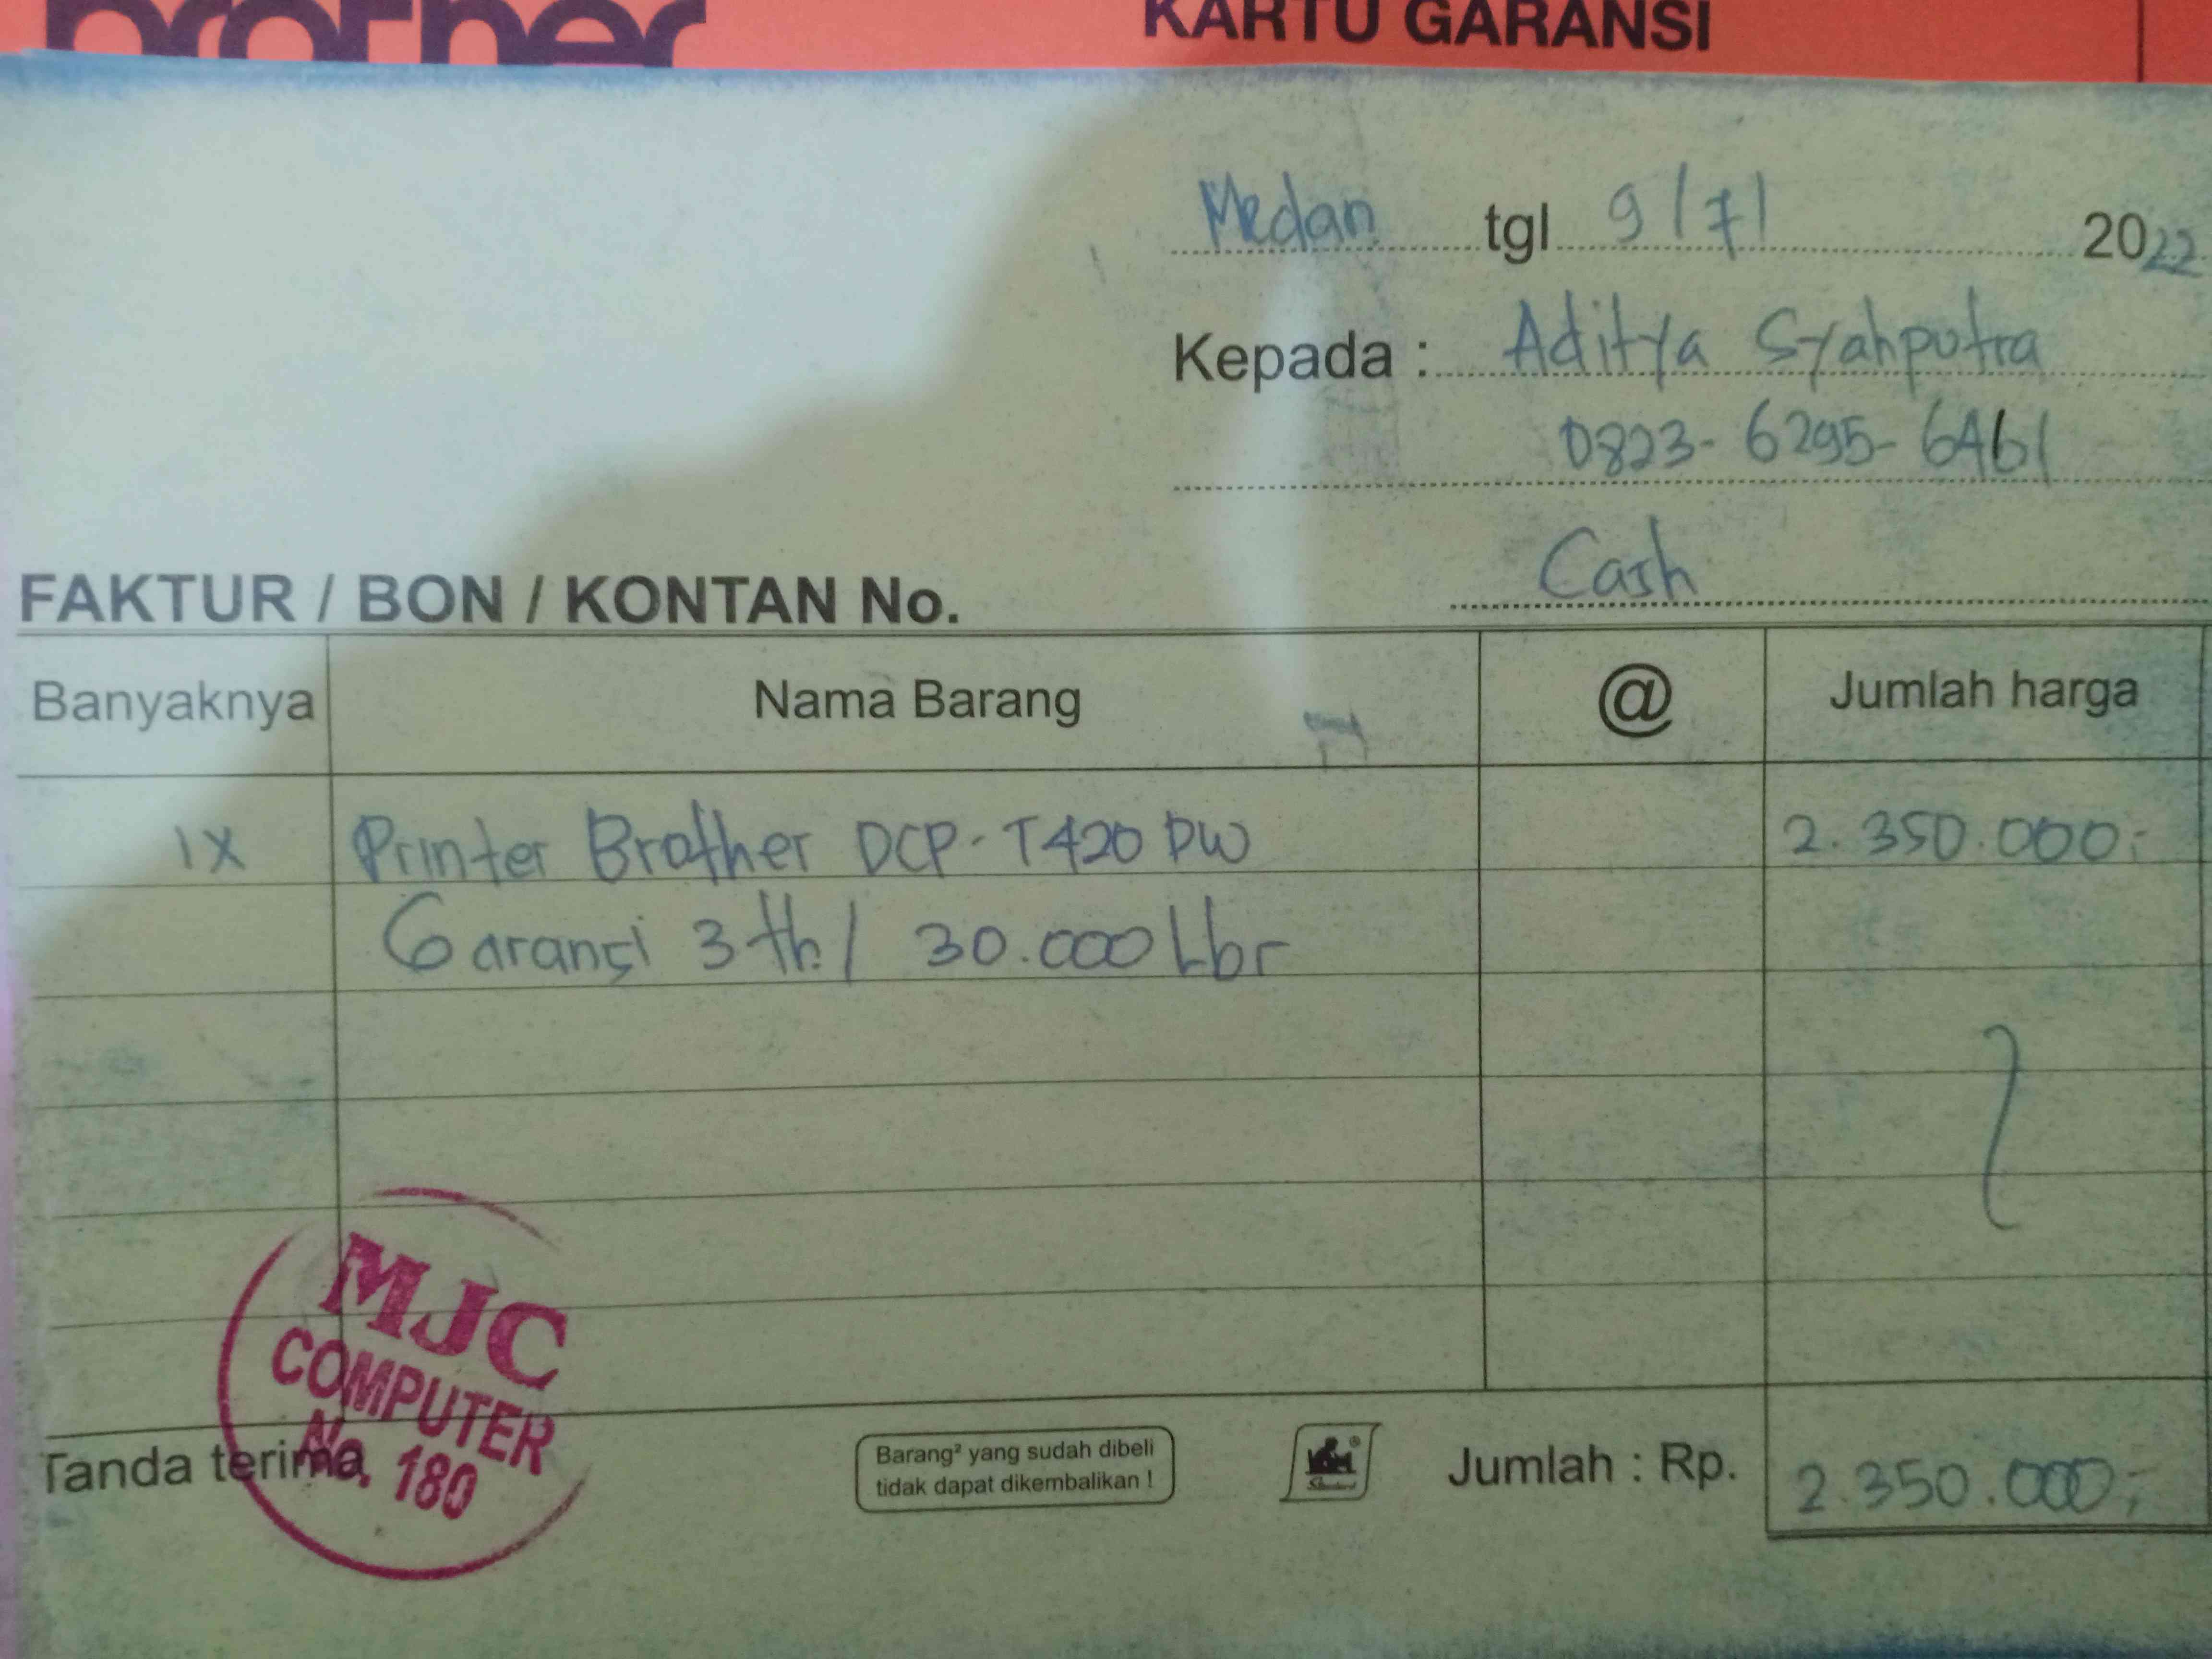 brother KARTU GARANSI
Medan tgl 9/7/ 2022
Kepada : Aditya Syahputra
0823-6295-6461
Cash
FAKTUR / BON / KONTAN No.
Banyaknya Nama Barang @ Jumlah harga
1X Printer Brother DCP-T420 DW 2.350.000;
Garansi 3 th / 30.000 Lbr
MJC
COMPUTER
No. 180
Tanda terima,
Barang² yang sudah dibeli
tidak dapat dikembalikan !
Jumlah : Rp. 2.350.000;